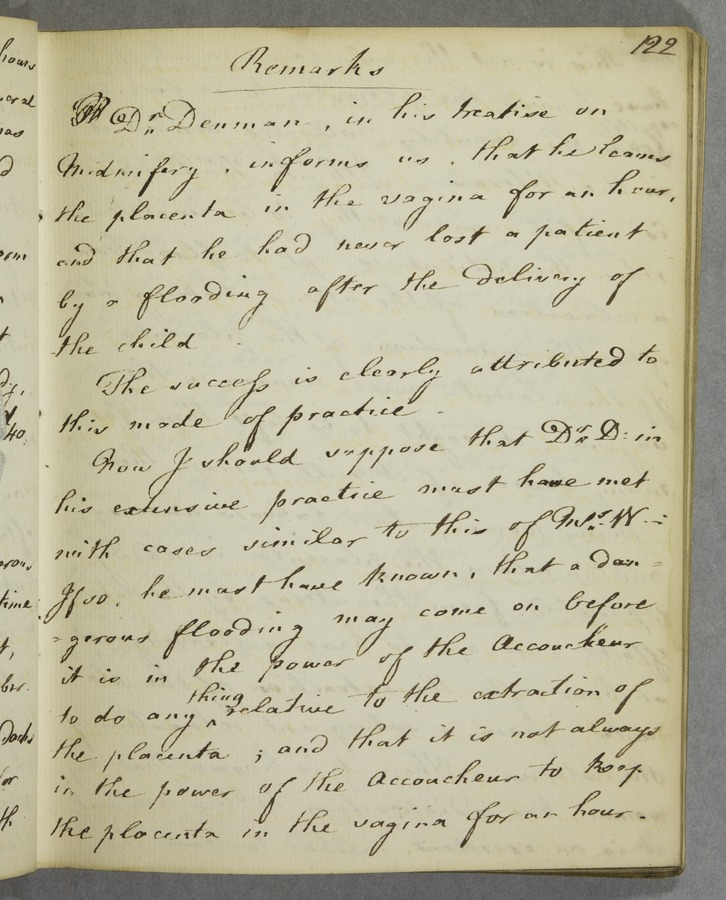 122
Remarks
Dr. Denman, in his treatise on
Midwifery, informs us, that he leaves
the placenta in the vagina for an hour,
and that he had never lost a patient
by a flooding after the delivery of
the child.
The success is clearly attributed to
this mode of practice.
Now I should suppose that Dr. D: in
his extensive practice must have met
with cases similar to this of Mrs. W.:
If so, he must have known, that a dan=
=gerous flooding may come on before
it is in the power of the Accoucheur
thing
to do any ^ relative to the extraction of
the placenta; and that it is not always
in the power of the Accoucheur to keep
the placenta in the vagina for an hour.